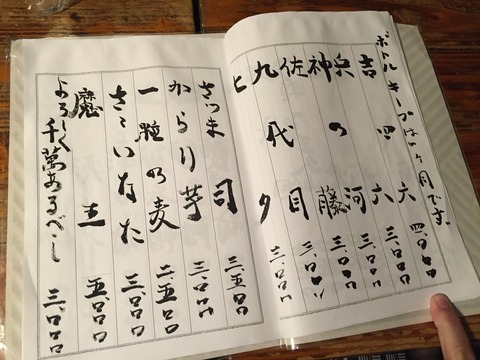 ボトルキープは一ヶ月です。
吉四六 四、〇〇〇
兵六 三、〇〇〇
神の河 三、〇〇〇
佐藤 三、〇〇〇
九代目 三、〇〇〇
七夕 三、〇〇〇
さつま司 三、五〇〇
からり芋 三、〇〇〇
一粒の麦 二、五〇〇
三、〇〇〇
魔王 五、〇〇〇
よろしく千萬あるべし 三、〇〇〇